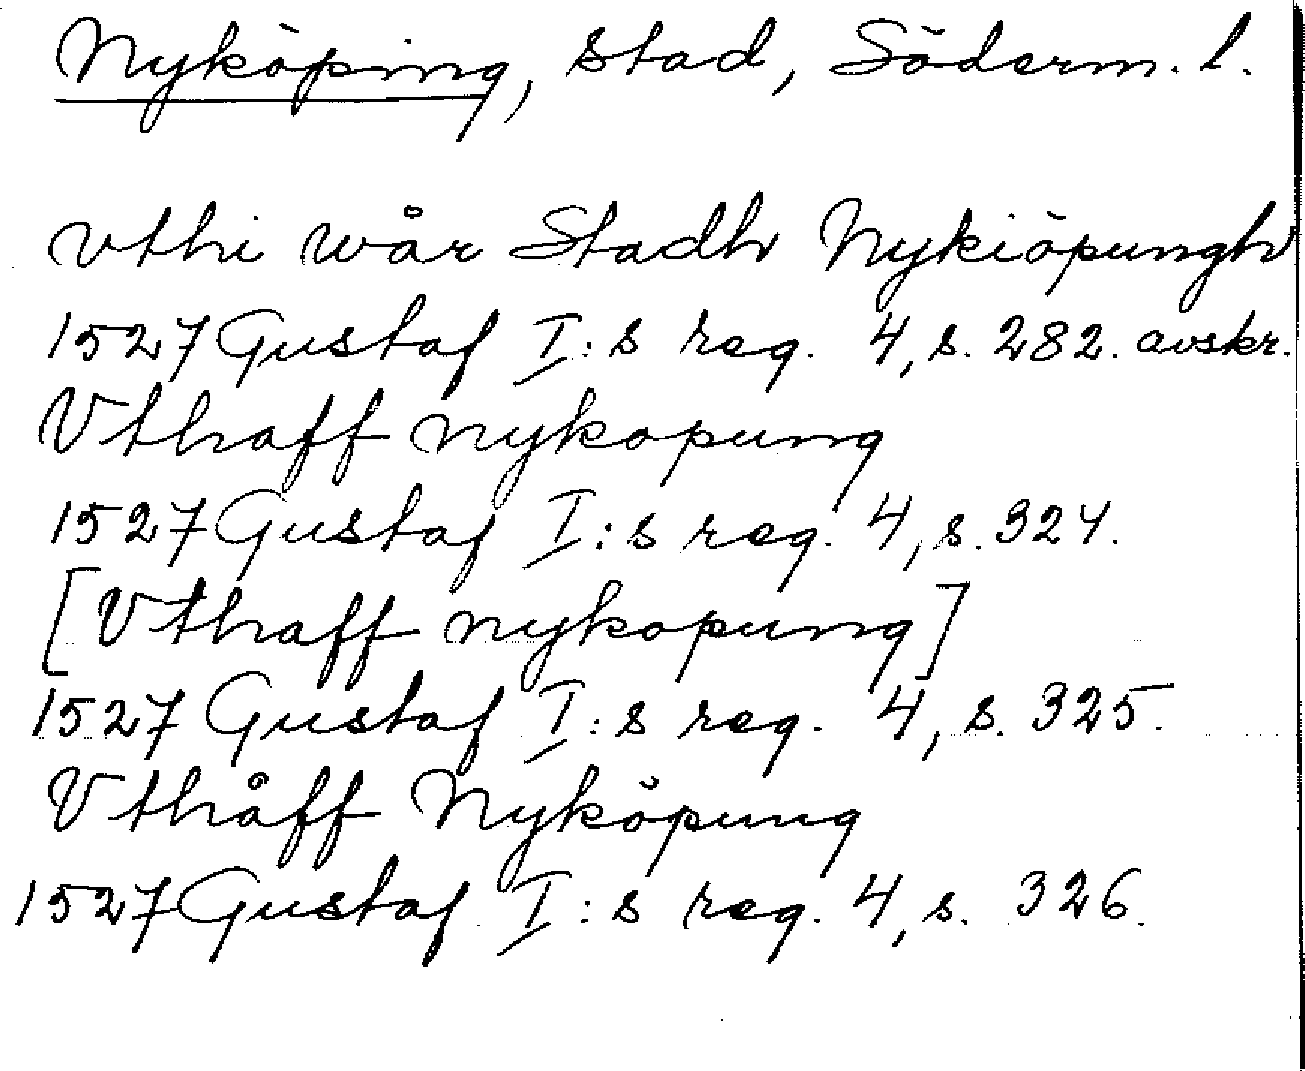 Nyköping, stad, Söderm. l.
vthi wår Stadh Nykiöpungh
1527 Gustaf I:s reg. 4, s. 282. avskr.
Vthaff nykopung
1527 Gustaf I:s reg. 4, s. 324.
[Vthaff nykopung]
1527 Gustaf I:s reg. 4, s. 325.
Vthåff Nyköpung
1527 Gustaf I:s reg. 4, s. 326.